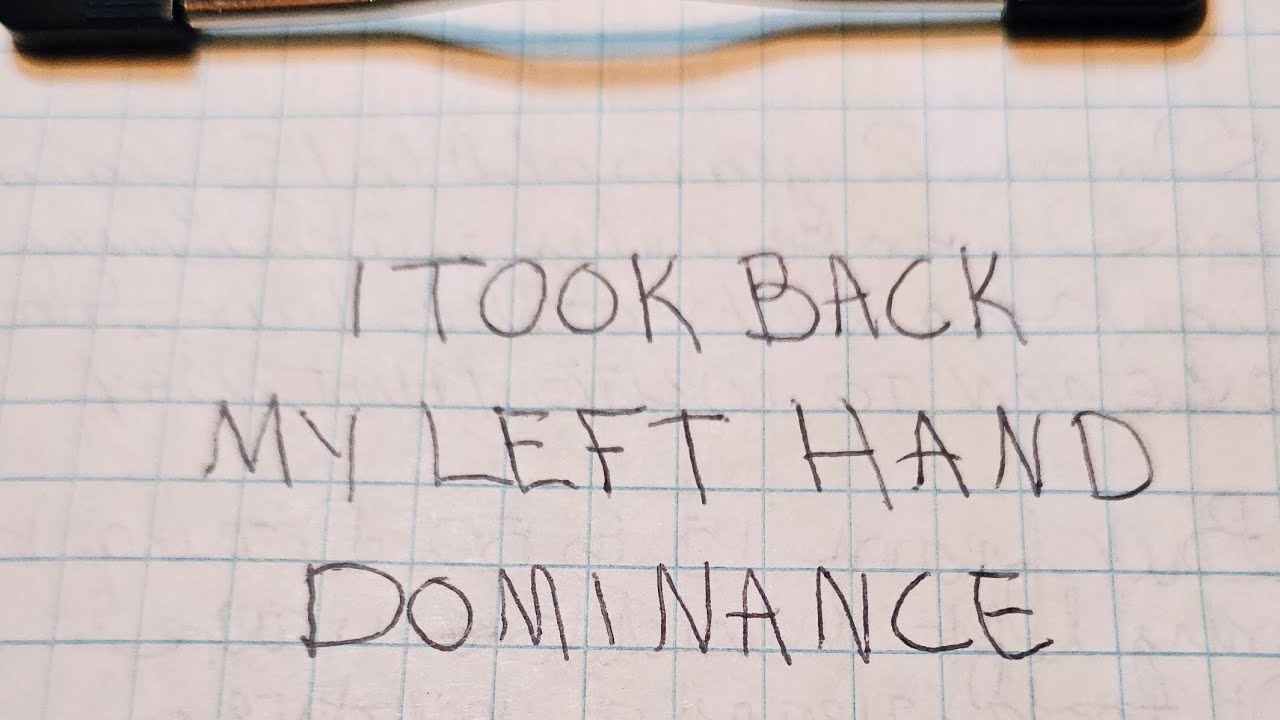 I TOOK BACK
MY LEFT HAND
DOMINANCE